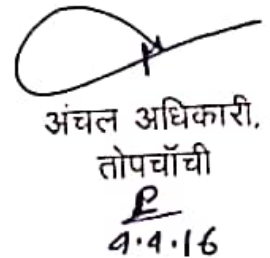 अंचल अधिकारी,
तोपचाँची
4.4.16